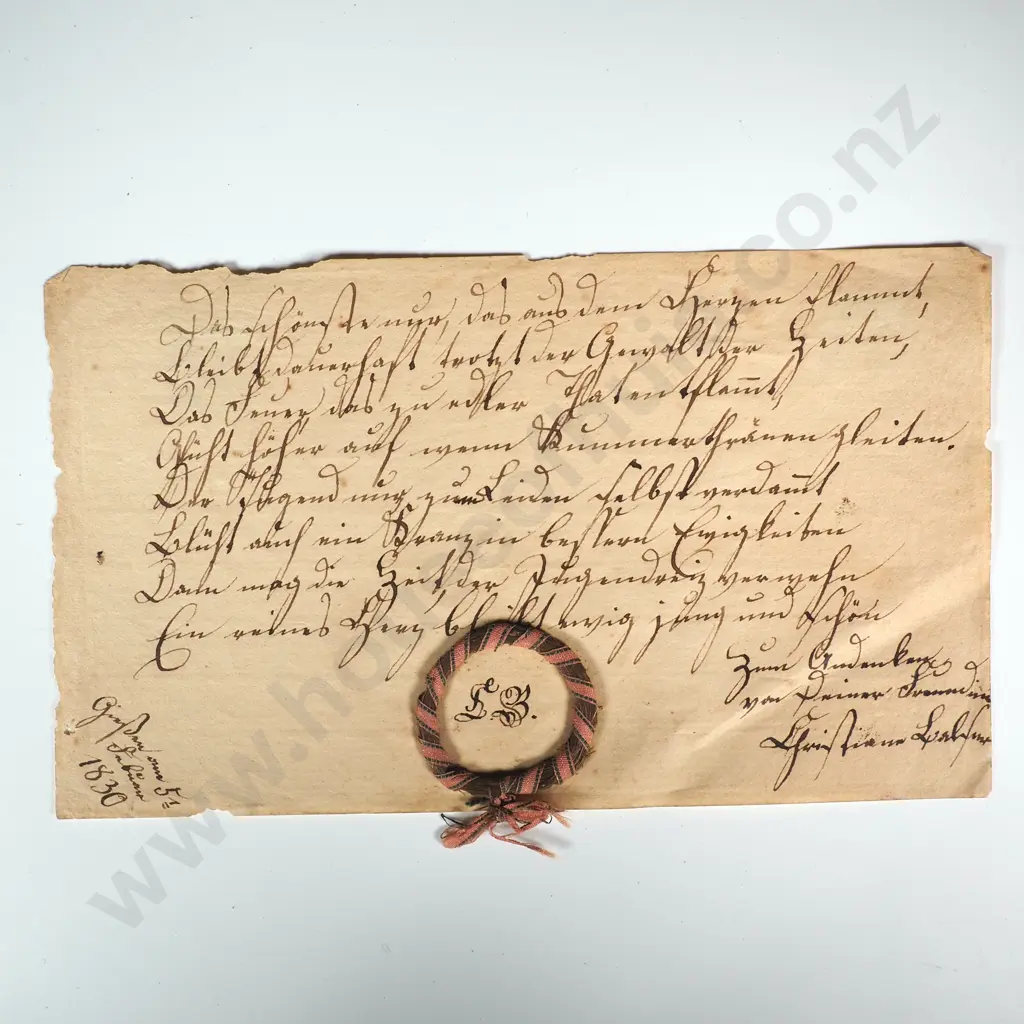 Das schönste nur, das aus dem Herzen flammt,
Bleibt dauerhaft trotzt der Gewalt der Zeiten,
Das Feuer, das zu edler That entflam̅t,
Glüht höher auf wenn Kummerthränen gleiten.
Der Tugend nur zum Leiden selbst verdam̅t
Blüht auch ein Kranz in bessern Ewigkeiten
Dann mag die Zeit der Jugendreiz verwehn
Ein reines Herz bleibt ewig jung und schön
Zum Andenken
von Deiner Freundin
Christiane Balser
F B.
Gießen am 5t
Februar
1830
www.hornseymint.co.nz